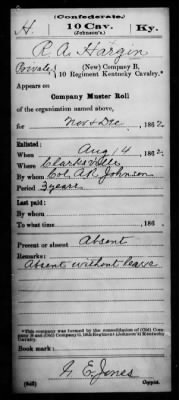 (Confederate.)
H. 10 Cav. Ky.
(Johnson's.)
R. A. Hargin
Private, (New) Company B,
10 Regiment Kentucky Cavalry.*
Appears on
Company Muster Roll
of the organization named above,
for Nov & Dec, 1862.
Enlisted:
When Aug 14, 1862.
Where Clarksville
By whom Col. A. R. Johnson
Period 3 years
Last paid:
By whom
To what time , 186 .
Present or absent Absent
Remarks:
Absent without leave
*This company was formed by the consolidation of (Old) Com-
Kentucky
Cavalry.
Book mark:
G. E. Jones
(642) Copyist.